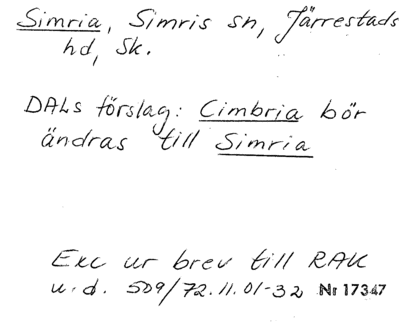 Simria, Simris sn, Järrestads
hd, Sk.
DALs förslag: Cimbria bör
ändras till Simria
Exc ur brev till RAK
u.d. 509/72.11.01-32 Nr 17347